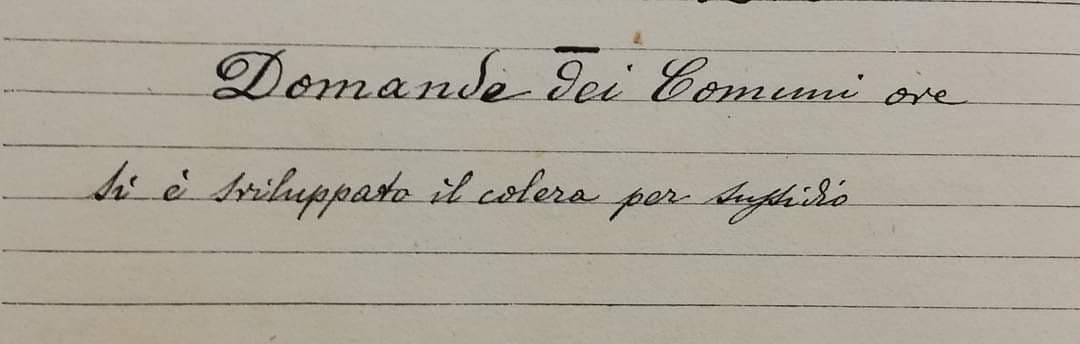 Domande dei Comuni ove
si è sviluppato il colera per sussidio